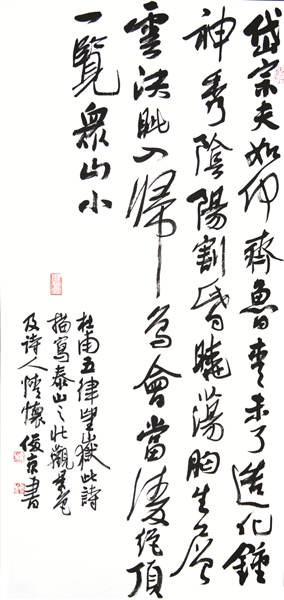 岱宗夫如何齊魯青未了造化鍾
神秀陰陽割昏曉蕩胸生層
雲決眥入歸鳥會當凌絕頂
一覽眾山小
杜甫五律望嶽此詩
描寫泰山之壯觀景色
及詩人情懷 俊書